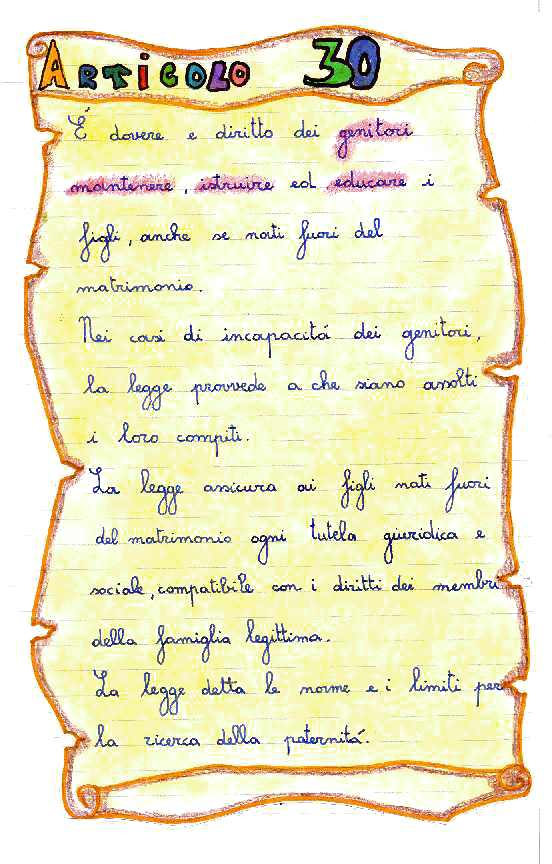 ARTICOLO 30
É dovere e diritto dei genitori
mantenere, istruire ed educare i
figli, anche se nati fuori del
matrimonio.
Nei casi di incapacitá dei genitori,
la legge provvede a che siano assolti
i loro compiti.
La legge assicura ai figli nati fuori
del matrimonio ogni tutela giuridica e
sociale, compatibile con i diritti dei membri
della famiglia legittima.
La legge detta le norme e i limiti per
la ricerca della paternitá.